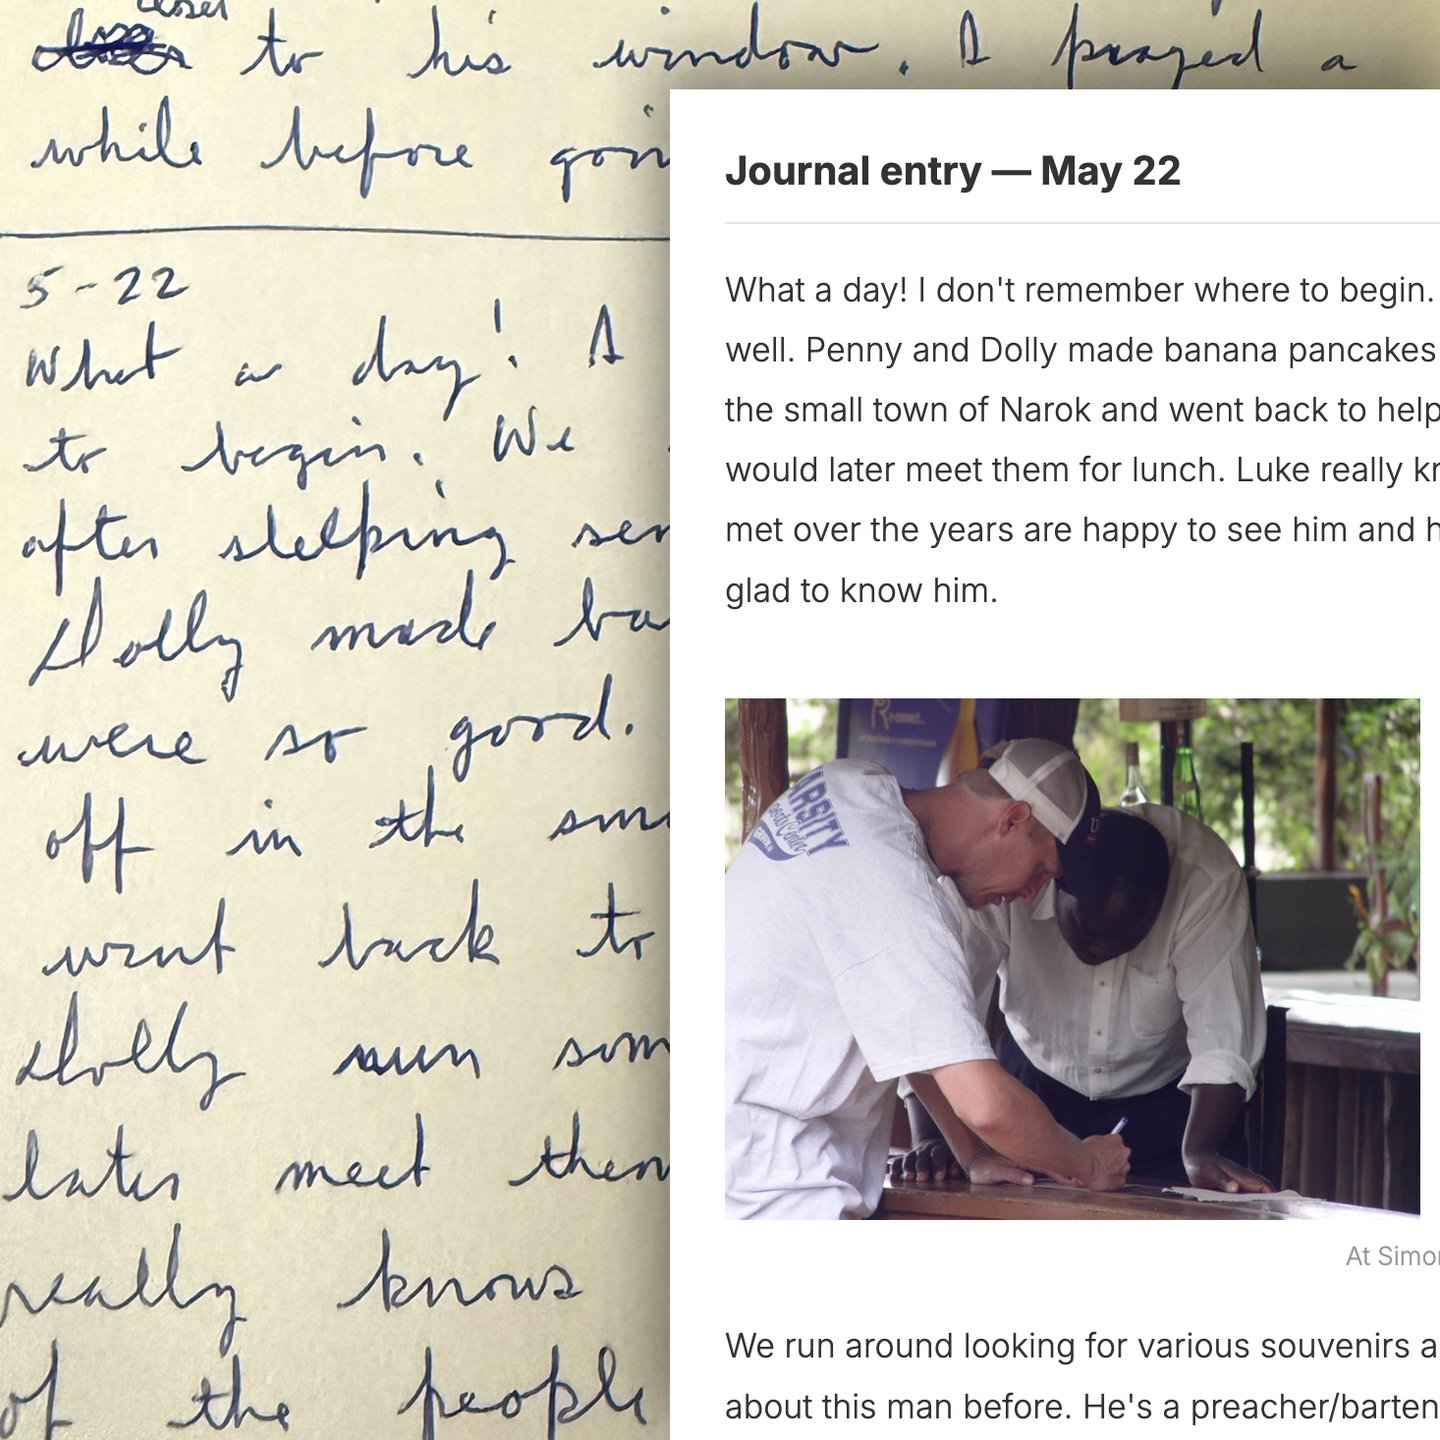 closer
to his window. I prayed a
while before goin
5-22
What a day! I
to begin. We
after sleeping
Dolly made ba
were so good.
off in the sma
went back to
Dolly run som
later meet them
really knows
of the people
Journal entry — May 22
What a day! I don't remember where to begin.
well. Penny and Dolly made banana pancakes
the small town of Narok and went back to help
would later meet them for lunch. Luke really kn
met over the years are happy to see him and h
glad to know him.
VARSITY
At Simon
We run around looking for various souvenirs a
about this man before. He's a preacher/barten